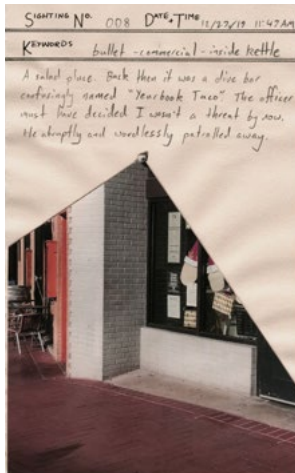 SIGHTING NO. 008 DATE+TIME 12/27/19 11:47AM
KEYWORDS bullet - commercial - inside kettle
A salad place. Back then it was a dive bar
confusingly named "Yearbook Taco" The officer
must have decided I wasn't a threat by now.
He abruptly and wordlessly patrolled away.